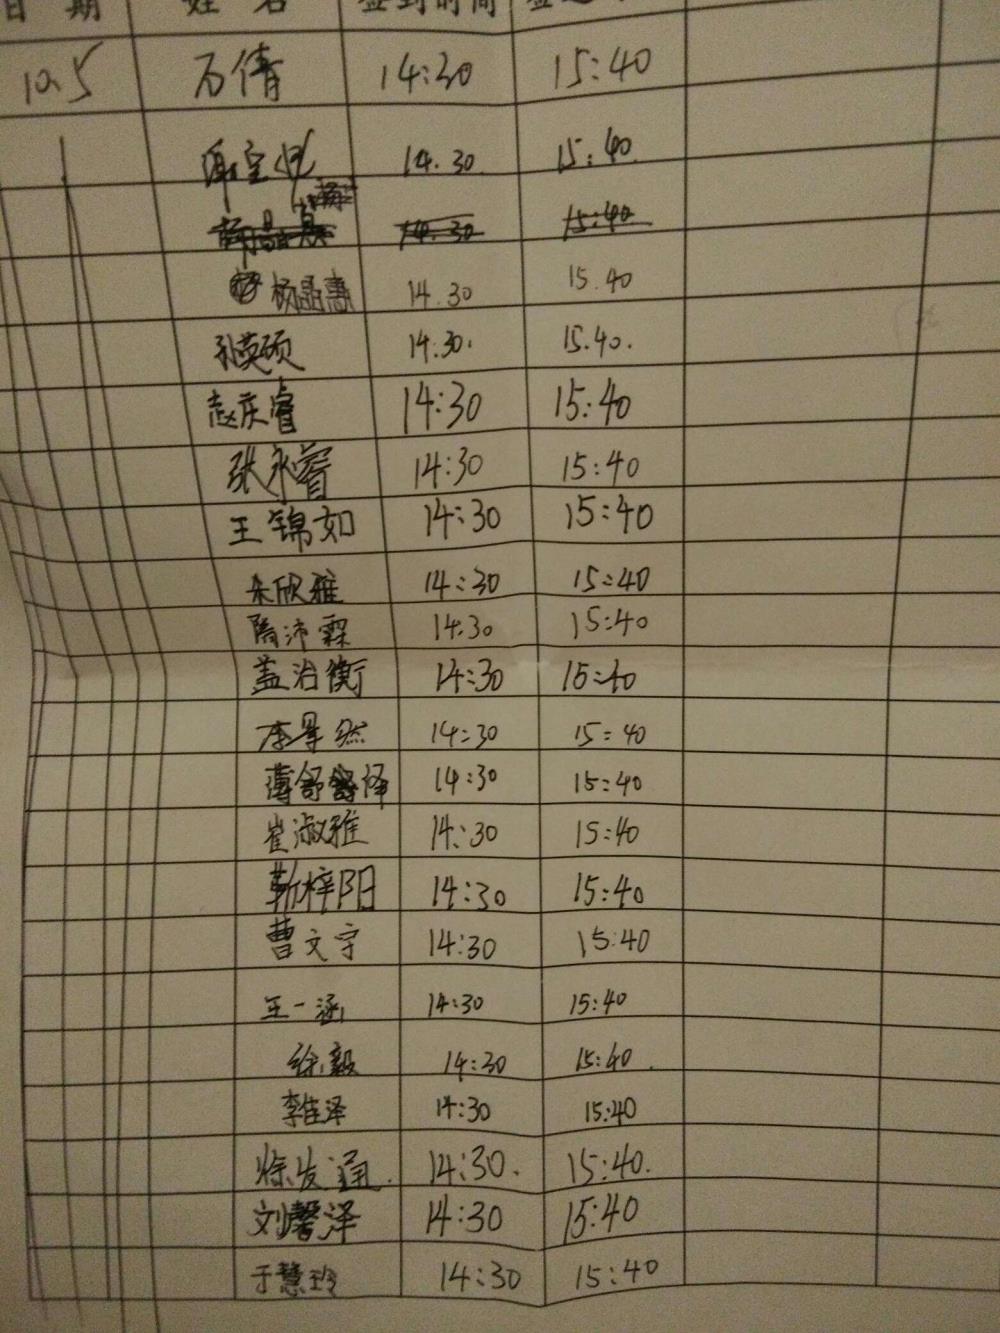 日期 姓名 签到时间
10.5 万倩 14:30 15:40
14.30 15:40
14.30 15:40
杨晶惠 14.30 15.40
孙英硕 14:30. 15.40.
赵庆睿 14:30 15:40
张永睿 14:30 15:40
王锦如 14:30 15:40
朱欣雅 14:30 15:40
隋沛霖 14:30 15:40
盖治衡 14:30 15:40
李昱然 14:30 15:40
薄舒译 14:30 15:40
崔淑雅 14:30 15:40
靳梓阳 14:30 15:40
曹文宇 14:30 15:40
王一涵 14:30 15:40
徐毅 14:30 15:40.
李佳泽 14:30 15:40
徐发通. 14:30. 15:40.
刘馨泽 14:30 15:40
于慧玲 14:30 15:40